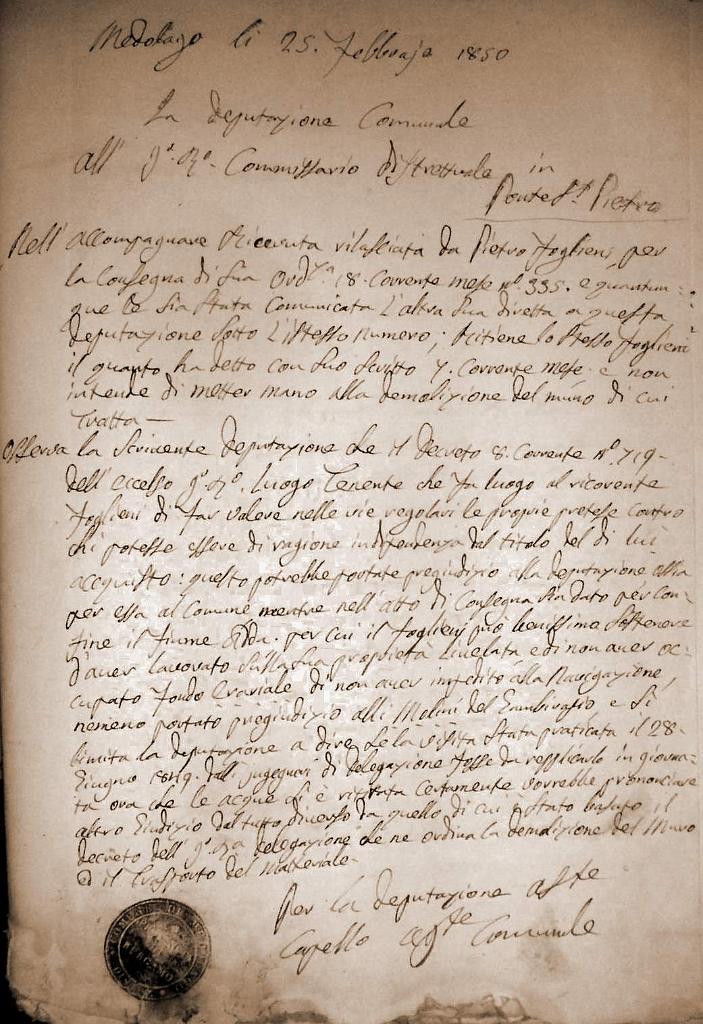 Medolago li 25. Febbrajo 1850
La Deputazione Comunale
all' I. R. Commissario Distrettuale in
Ponte S.t Pietro
Nell' accompagnare Ricevuta rilasciata da Pietro Foglieni per
la Consegna di Sua Ord.za 18. Corrente mese N.o 335. e quantun-
que le sia stata Comunicata l'altra Sua diretta a questa
Deputazione Sotto l'istesso numero; Ritiene lo stesso Foglieni
il quanto ha detto con Suo Scritto 7. Corrente mese e non
intende di metter mano alla demolizione del muro di cui
tratta —
Osserva la Scrivente Deputazione che il Decreto 8. Corrente N.o 719-
dell' eccelso I. R. Luogo Tenente che fa luogo al ricorrente
Foglieni di far valere nelle vie regolari le proprie pretese Contro
chi potesse essere di ragione indipendenza dal titolo del di lui
acquisto: questo potrebbe portare pregiudizio alla Deputazione ossia
per essa al Comune mentre nell' atto di Consegna Sia dato per Con-
fine il fiume Adda. per cui il Foglieni può benissimo Sostenere
d'aver lavorato sulla Sua proprietà livelata e di non aver oc-
cupato fondo Erariale di non aver impedito alla Navigazione,
nemeno portato pregiudizio alli Molini del e Si
limita la Deputazione a dire Se la visita Stata praticata il 28-
Giugno 1849. dall' ingegneri di Delegazione fosse da repplicarlo in giorna-
ta ora che le acque Si è ritirata Certamente dovrebbe prononciare
altro Giudizio dal tutto diverso da quello di cui è stato basato il
decreto dell' I. R. Delegazione che ne ordina la demolizione del Muro
ed il trasporto del Materiale-
Per la Deputazione
Capello Ag.te Comunale